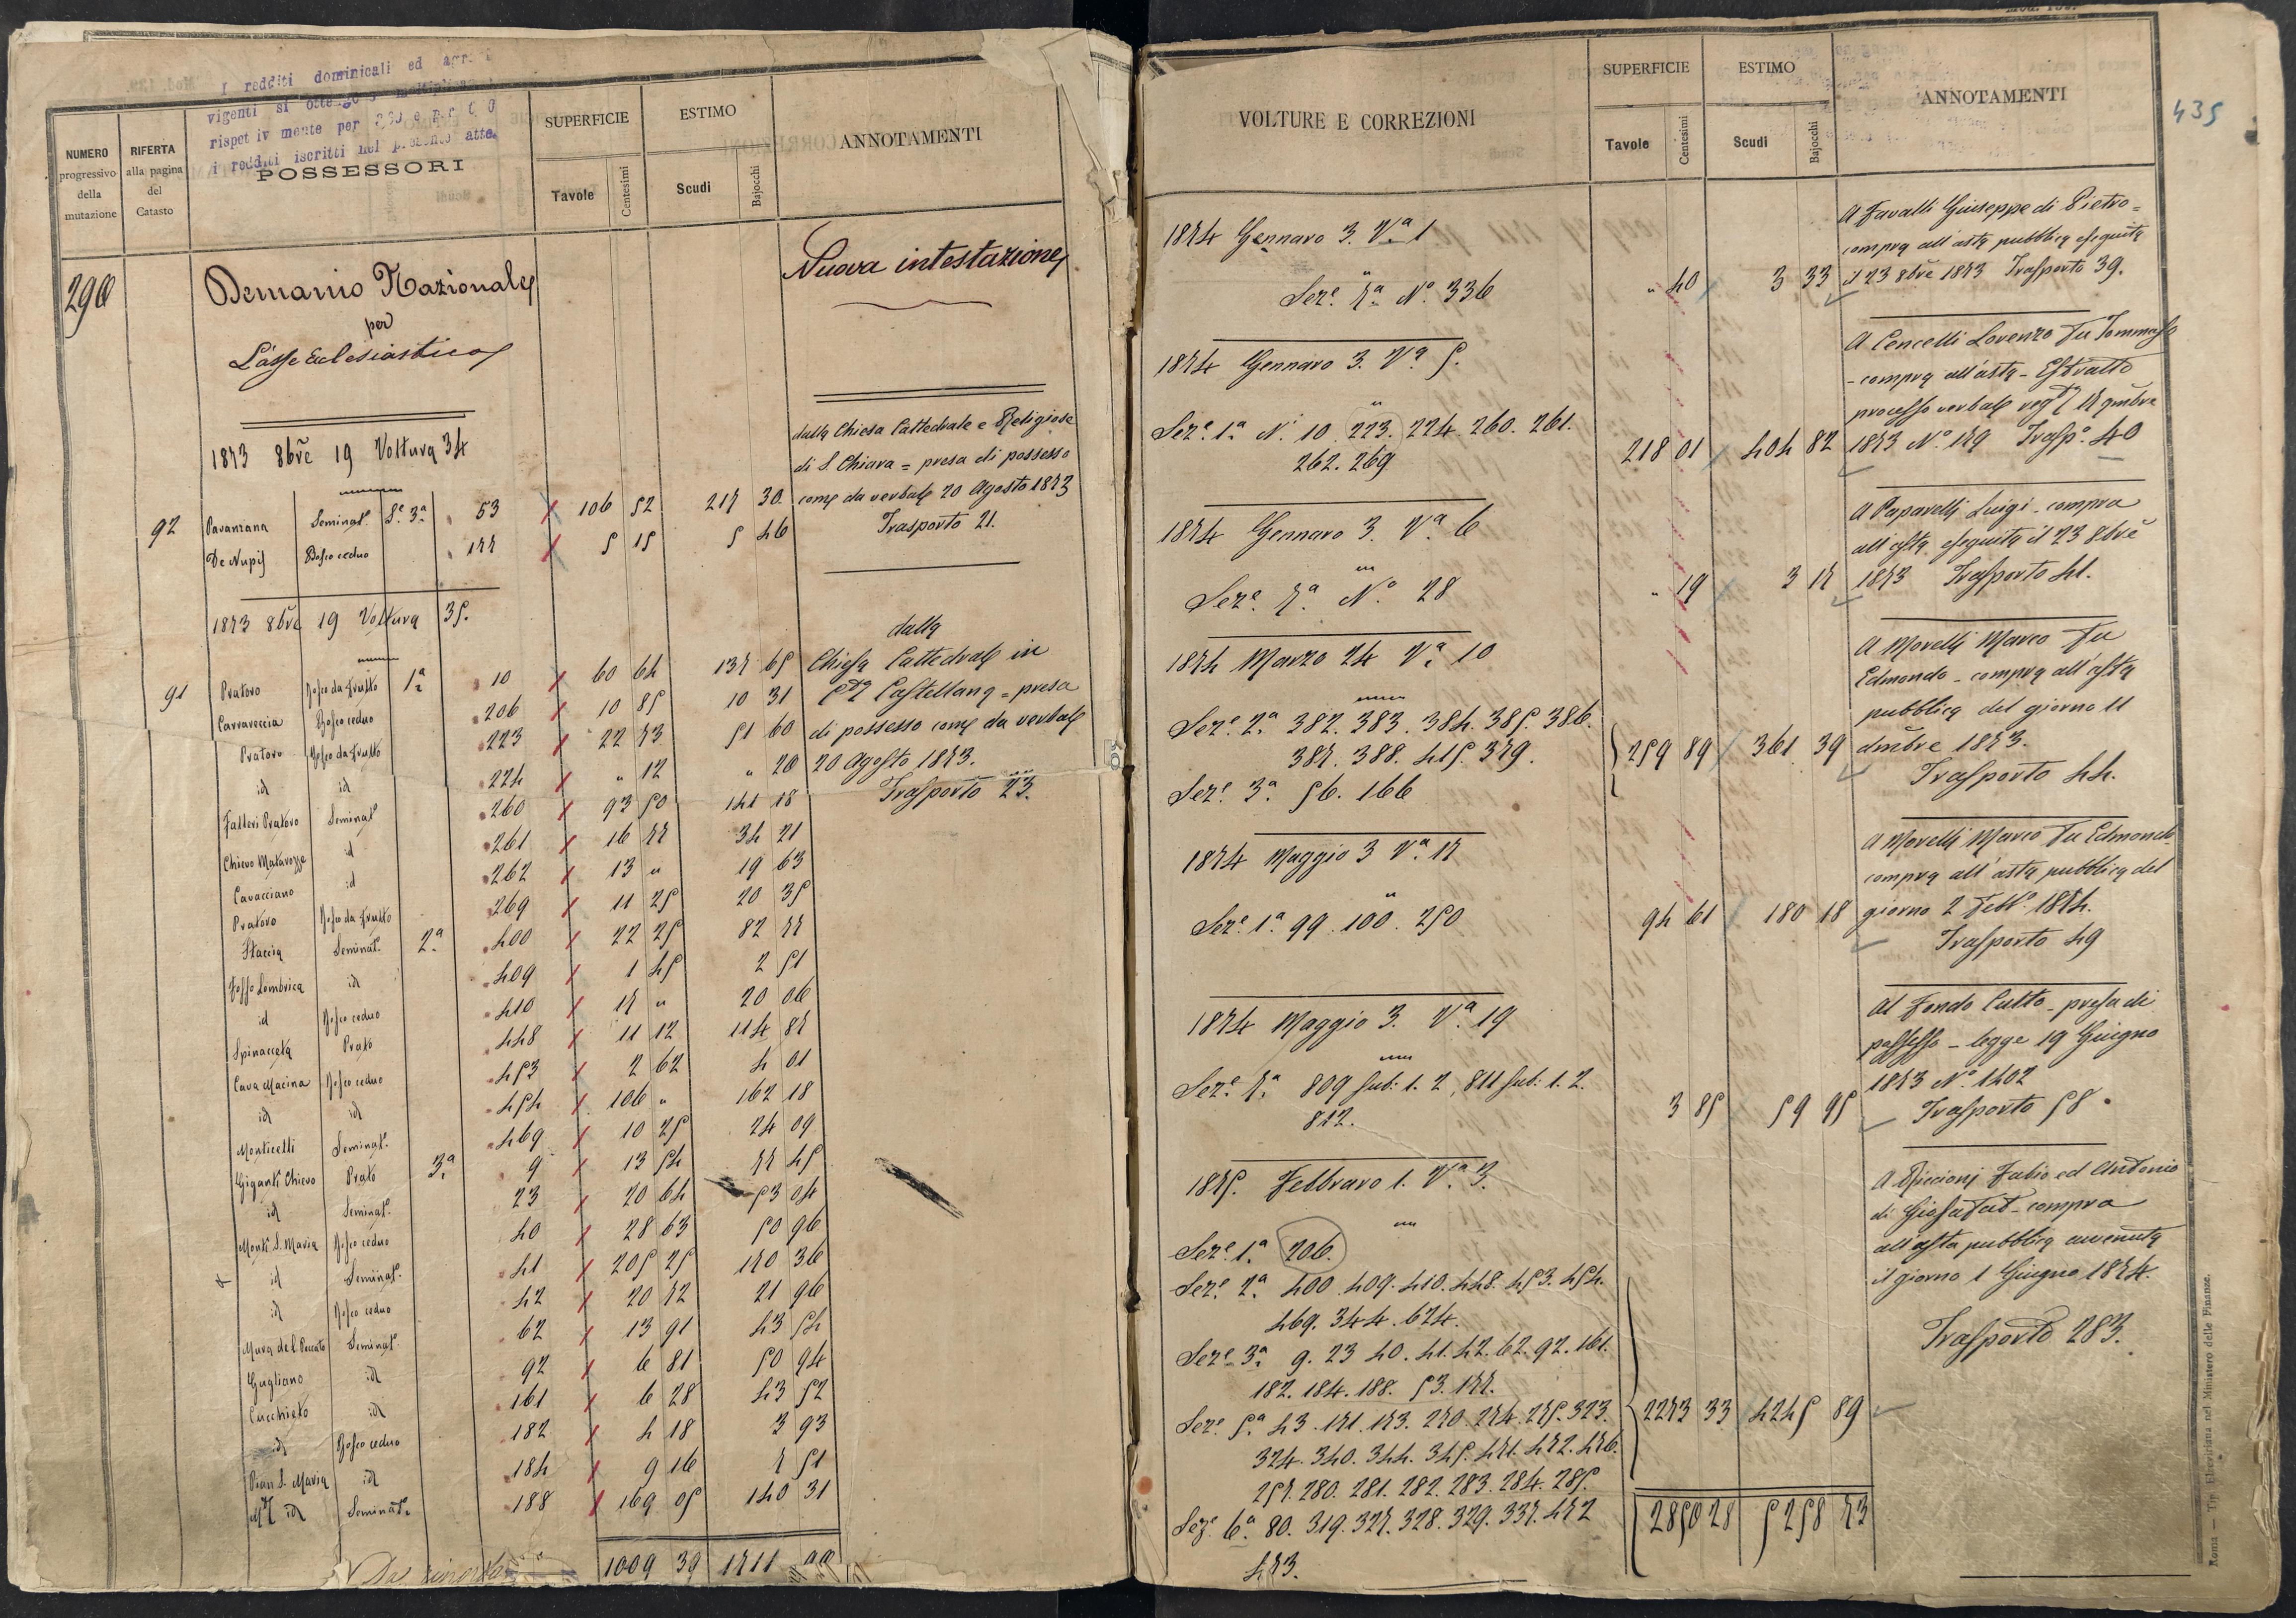 I redditi dominicali ed
vigenti si
rispettivamente per
i redditi iscritti nel presente
NUMERO progressivo della mutazione
RIFERTA alla pagina del Catasto
POSSESSORI
SUPERFICIE
Tavole Centesimi
ESTIMO
Scudi Bajocchi
ANNOTAMENTI
290 Demanio Nazionale Nuova intestazione
per
L'asse Ecclesiastico
1873 8bre 19 Voltura 34
dalla Chiesa Cattedrale e Religiose
di S. Chiara = presa di possesso
come da verbale 20 Agosto 1873
Trasporto 21.
92 Pavanzana Seminat. Se. 3a 53 106 52 217 30
De Nupis Bosco ceduo 177 5 15 5 46
1873 8bre 19 Voltura 35.
dalla
Chiesa Cattedrale in
Cta Castellana = presa
di possesso come da verbale
20 Agosto 1873.
Trasporto 23.
91 Pratoro Bosco da frutto 1a 10 60 64 137 65
Carraveccia Bosco ceduo 206 10 85 10 31
Pratoro Bosco da frutto 223 22 73 51 60
id id 224 " 12 " 20
Fatteri Pratoro Seminat. 260 93 50 141 18
Chievo Matavozze id 261 16 77 34 21
Cavacciano id 262 13 " 19 63
Pratoro Bosco da frutto 269 11 25 20 35
Staccia Seminat. 2a 400 22 25 82 77
Fosso Lombrica id 409 1 45 2 51
id Bosco ceduo 410 17 " 20 06
Spinacceta Prato 448 11 12 114 87
Cava Macina Bosco ceduo 453 2 62 4 01
id id 454 106 " 162 18
Monticelli Seminat. 469 10 25 24 09
Giganti Chievo Prato 3a 9 13 54 77 45
id Seminat. 23 20 64 53 04
Monte S. Maria Bosco ceduo 40 28 63 50 96
id Seminat. 41 205 25 170 36
id Bosco ceduo 42 20 72 21 96
Mura del Peccato Seminat. 62 13 91 43 54
Gugliano id 92 6 81 50 94
Cucchieto id 161 6 28 43 52
id Bosco ceduo 182 4 18 3 93
Pian S. Maria id 184 9 16 7 51
id Seminat. 188 169 05 140 31
1009 39 1711
VOLTURE E CORREZIONI
SUPERFICIE
Tavole Centesimi
ESTIMO
Scudi Bajocchi
ANNOTAMENTI
435
1874 Gennaro 3. Va 1
Seze. 7a No. 336 " 40 3 33
A Favalli Giuseppe di Pietro =
compra all'asta pubblica eseguita
il 23 8bre 1873 Trasporto 39.
1874 Gennaro 3. Va 5.
Seze. 1a N. 10. 223. 224. 260. 261.
262. 269 218 01 404 82
A Cencelli Lorenzo fu Tommaso
- compra all'asta - Estratto
processo verbale regto 17 9mbre
1873 No. 179 Traspo. 40
1874 Gennaro 3. Va 6
Seze. 7a No. 28 " 19 3 17
A Paparelli Luigi - compra
all'asta eseguita il 23 8bre
1873 Trasporto 41.
1874 Marzo 24 Va 10
Seze. 2a 382. 383. 384. 385. 386.
387. 388. 415. 379.
Seze. 3a 56. 166 259 89 361 39
A Morelli Marco fu
Edmondo - compra all'asta
pubblica del giorno 11
dmbre 1873.
Trasporto 44.
1874 Maggio 3 Va 17
Seze. 1a 99. 100. 250 94 61 180 18
A Morelli Marco fu Edmondo
compra all'asta pubblica del
giorno 2 Febbo. 1874.
Trasporto 49
1874 Maggio 3. Va 19
Seze. 7a 809 sub: 1. 2, 811 sub: 1. 2.
812. 3 85 59 95
Al Fondo Culto - presa di
possesso - legge 19 Giugno
1873 No. 1402
Trasporto 58.
1875. Febbraro 1. Va 3.
Seze. 1a 206.
Seze. 2a 400. 409. 410. 448. 453. 454.
469. 344. 624.
Seze. 3a 9. 23 40. 41. 42. 62. 92. 161.
182. 184. 188. 53. 177.
Seze. 5a 43. 171. 173. 270. 274. 275. 323.
324. 340. 344. 345. 471. 472. 476.
257. 280. 281. 282. 283. 284. 285.
Seze. 6a 80. 319. 327. 328. 329. 337. 472
473.
2273 33 4245 89
A Riccioni Fabio ed Antonio
di Giosafat - compra
all'asta pubblica avvenuta
il giorno 1 Giugno 1874.
Trasporto 283.
2850 28 5258 73
Roma — Tip. Elzeviriana nel Ministero delle Finanze.